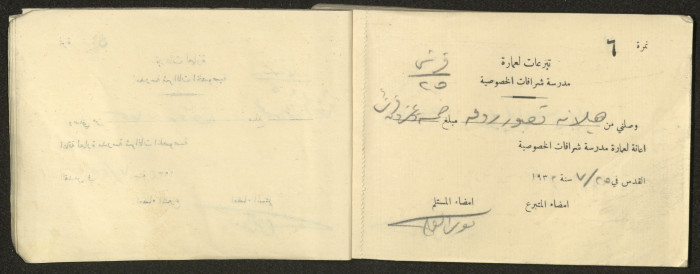 نمرة ٦
تبرعات لعمارة
مدرسة شرافات الخصوصية
قرش
٢٥
وصلني من هيلانه مبلغ خمسة وعشرون قرشاً
اعانة لعمارة مدرسة شرافات الخصوصية
القدس في ٢٥/٧ سنة ١٩٣٢
امضاء المتبرع امضاء المستلم